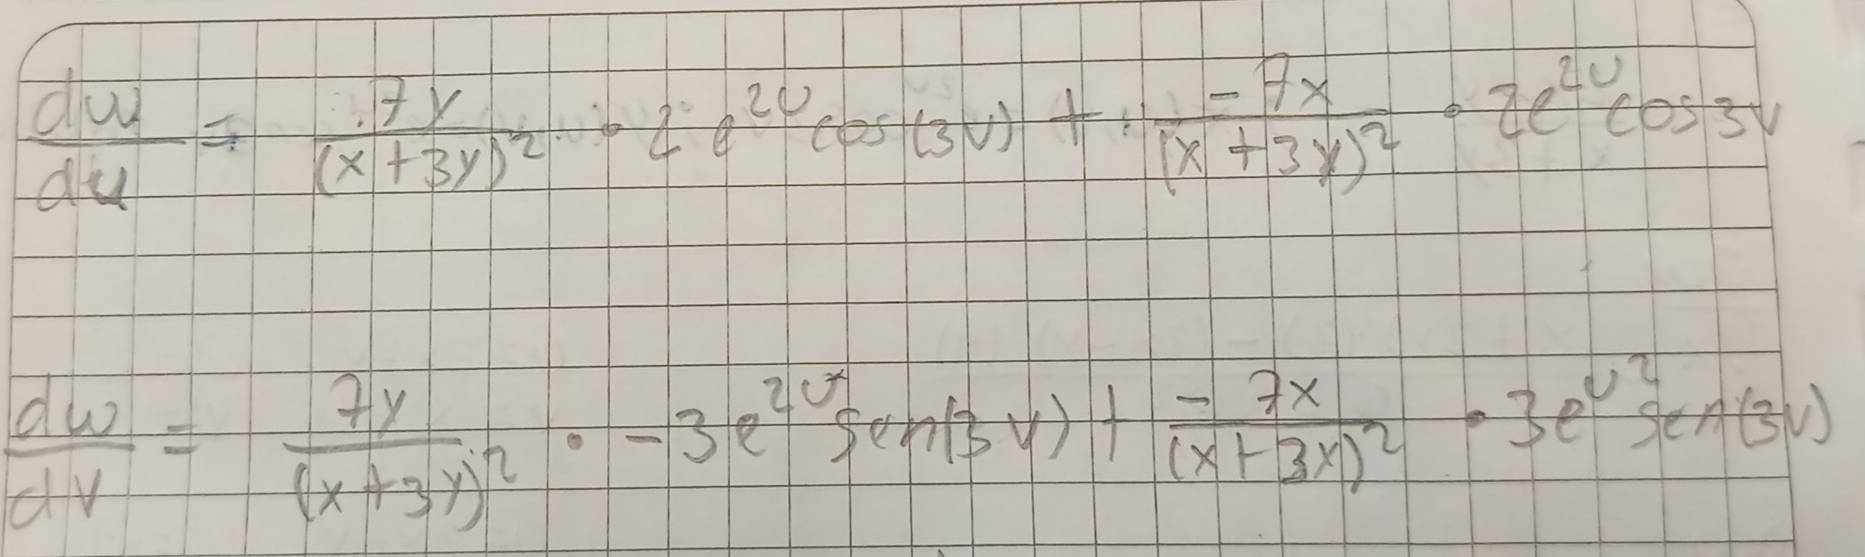 dw/du = 7y/(x+3y)² · 2e^{2u} cos(3v) + -7x/(x+3y)² · 2e^{2u} cos 3v
dw/dv = 7y/(x+3y)² · -3e^{2u} sen(3v) + -7x/(x+3x)² · 3e^{u²} sen(3v)